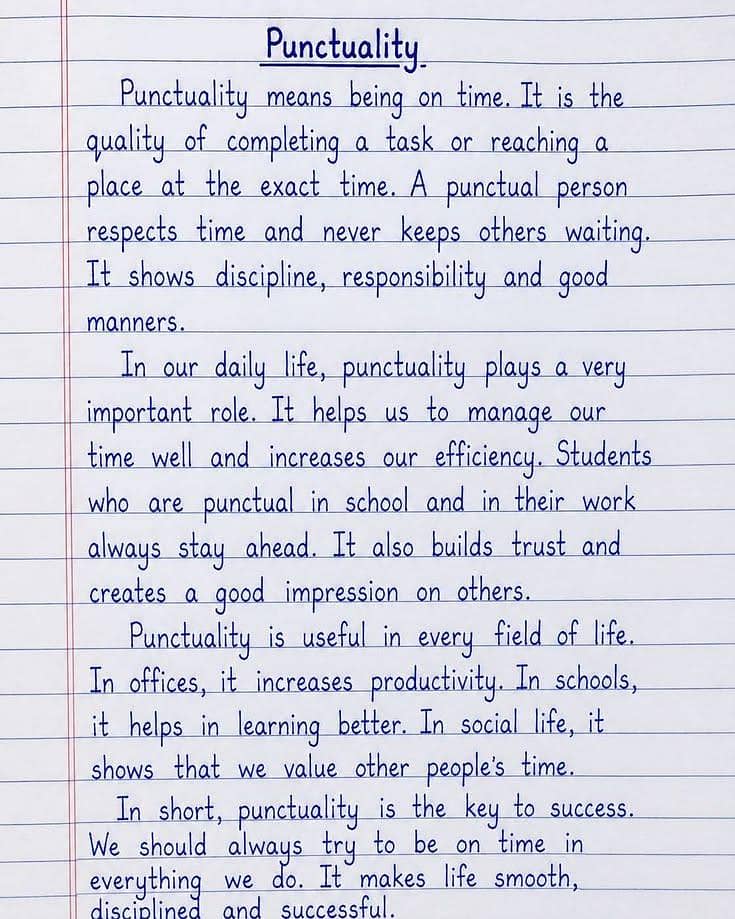 Punctuality.
Punctuality means being on time. It is the
quality of completing a task or reaching a
place at the exact time. A punctual person
respects time and never keeps others waiting.
It shows discipline, responsibility and good
manners.
In our daily life, punctuality plays a very
important role. It helps us to manage our
time well and increases our efficiency. Students
who are punctual in school and in their work
always stay ahead. It also builds trust and
creates a good impression on others.
Punctuality is useful in every field of life.
In offices, it increases productivity. In schools,
it helps in learning better. In social life, it
shows that we value other people's time.
In short, punctuality is the key to success.
We should always try to be on time in
everything we do. It makes life smooth,
disciplined and successful.